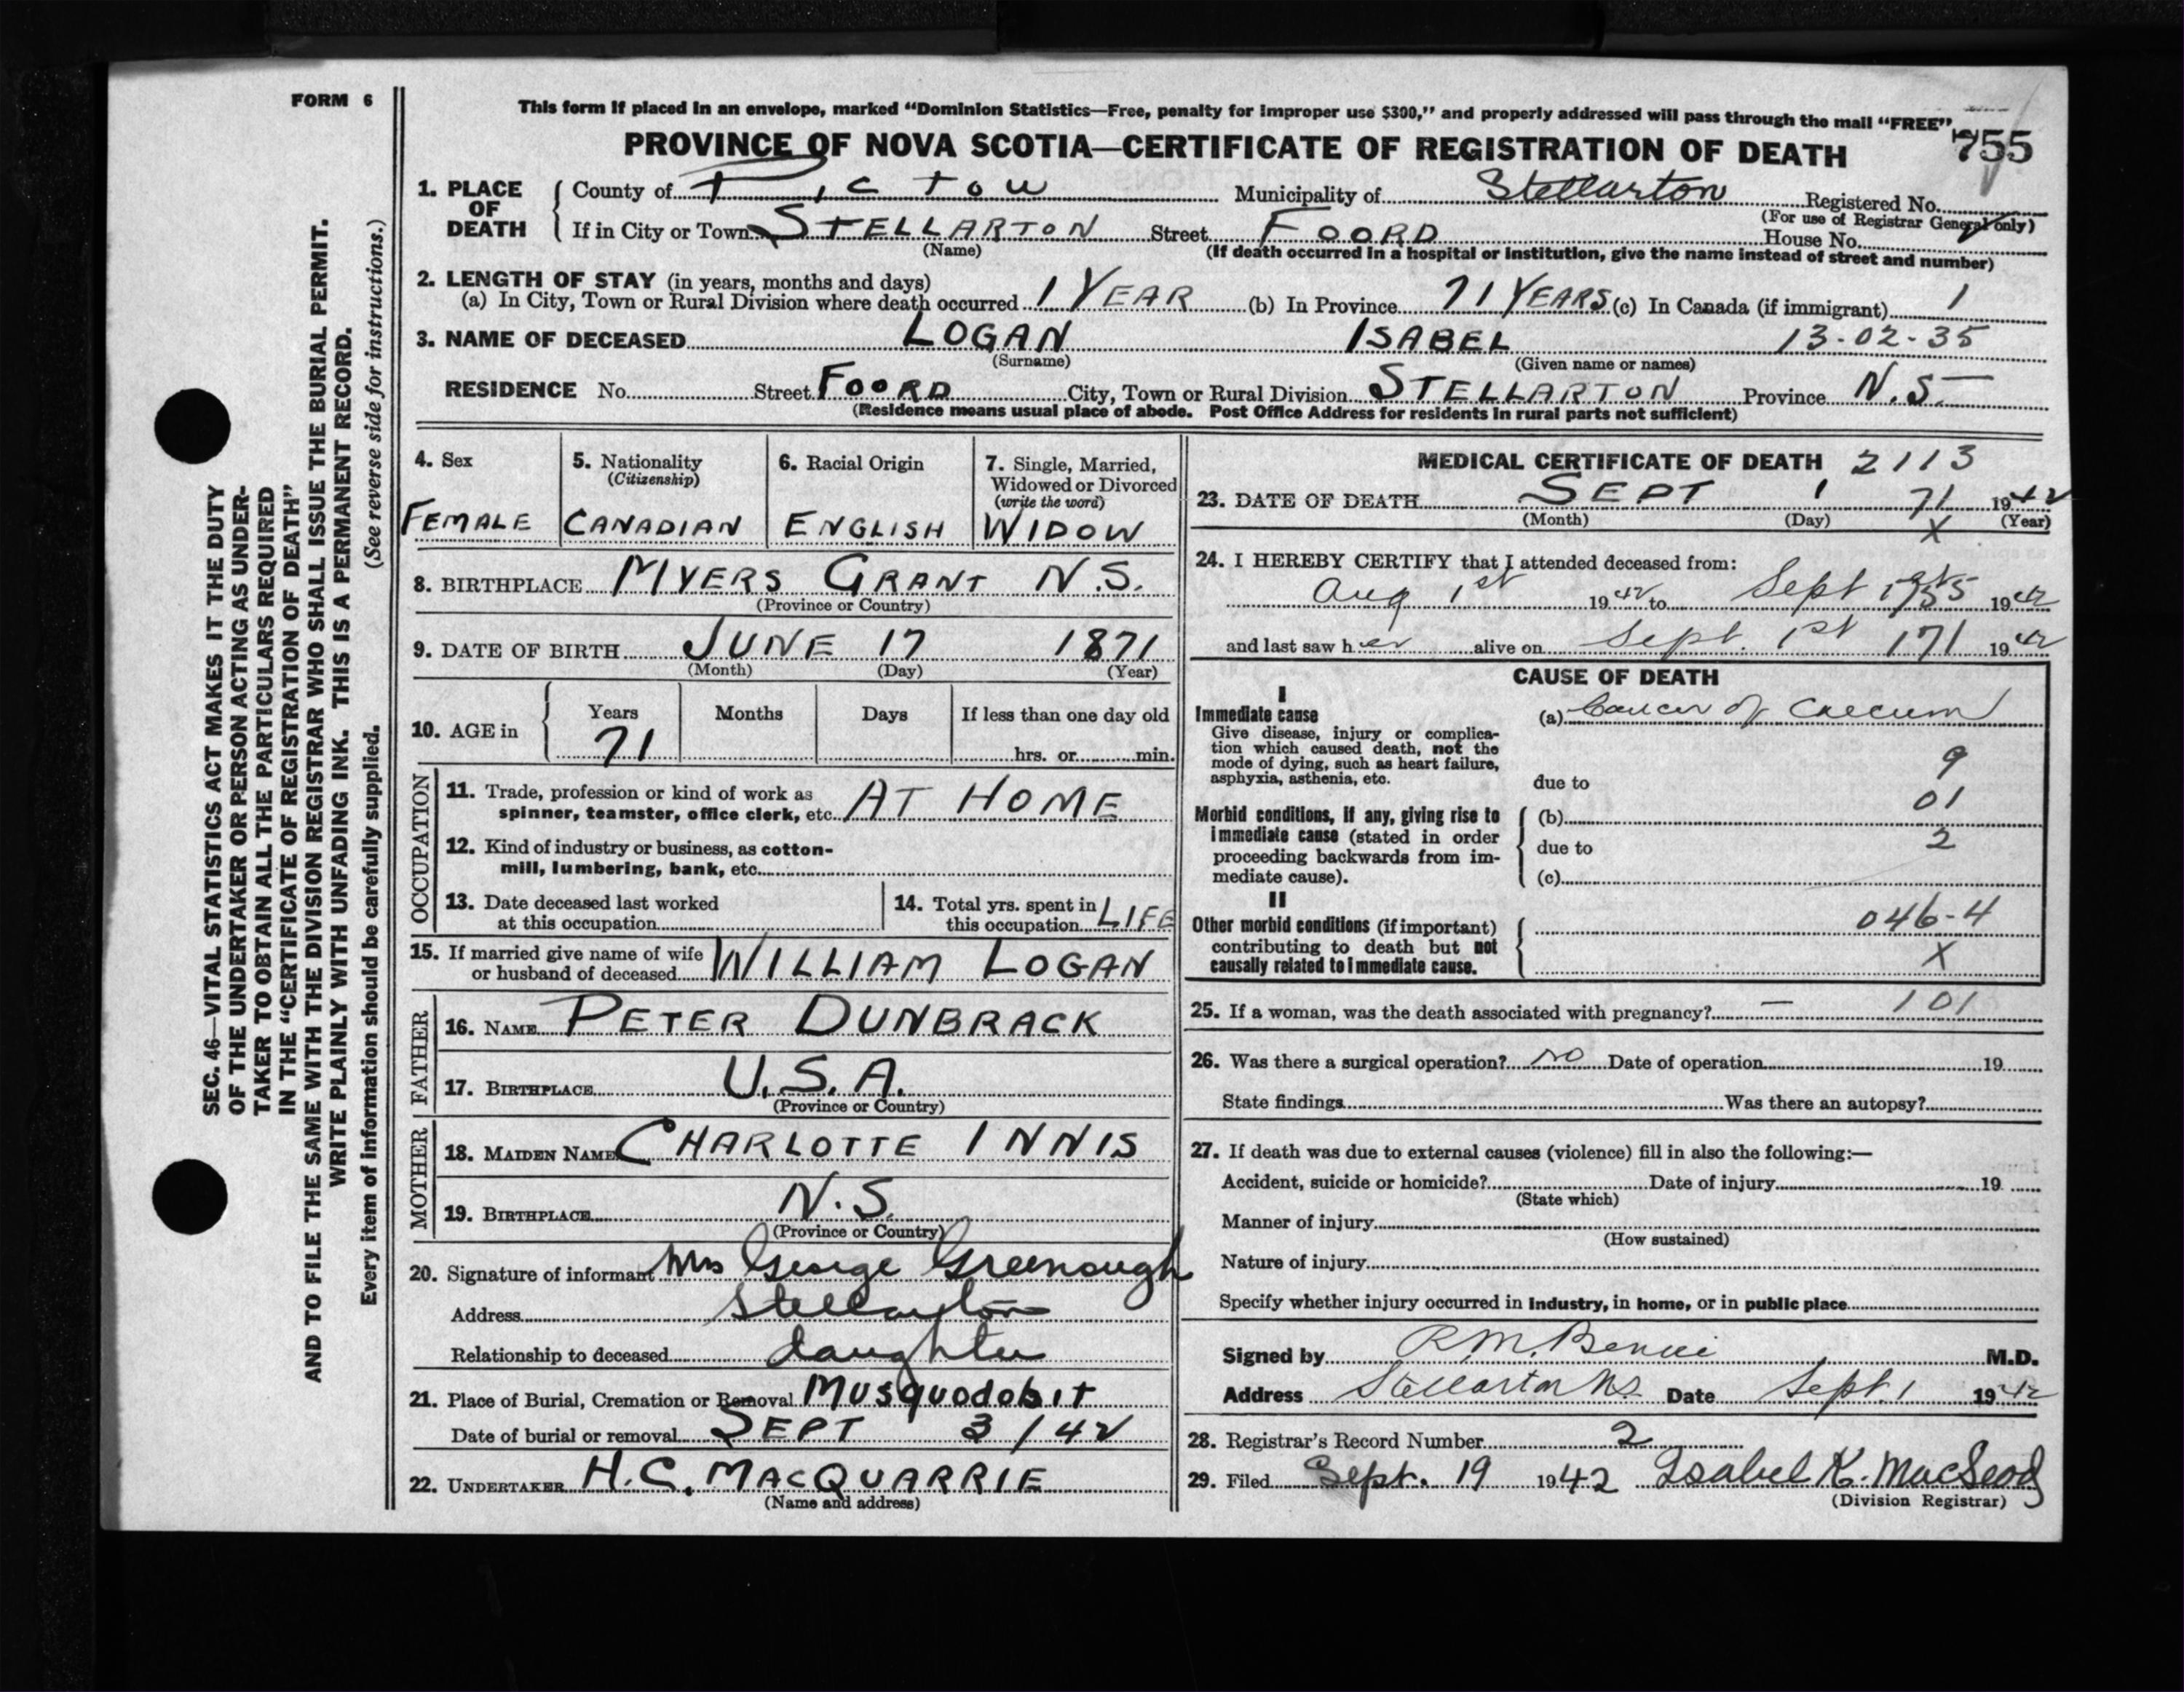 FORM 6
This form if placed in an envelope, marked “Dominion Statistics—Free, penalty for improper use $300,” and properly addressed will pass through the mail “FREE”
PROVINCE OF NOVA SCOTIA—CERTIFICATE OF REGISTRATION OF DEATH 755
1. PLACE OF DEATH County of Pictou Municipality of Stellarton Registered No.
(For use of Registrar General only)
If in City or Town STELLARTON Street FOORD House No.
(Name) (If death occurred in a hospital or institution, give the name instead of street and number)
2. LENGTH OF STAY (in years, months and days)
(a) In City, Town or Rural Division where death occurred 1 YEAR (b) In Province 71 YEARS (c) In Canada (if immigrant) 1
3. NAME OF DECEASED LOGAN ISABEL 13-02-35
(Surname) (Given name or names)
RESIDENCE No. Street FOORD City, Town or Rural Division STELLARTON Province N.S.
(Residence means usual place of abode. Post Office Address for residents in rural parts not sufficient)
4. Sex
FEMALE
5. Nationality
(Citizenship)
CANADIAN
6. Racial Origin
ENGLISH
7. Single, Married,
Widowed or Divorced
(write the word)
WIDOW
8. BIRTHPLACE MYERS GRANT N.S.
(Province or Country)
9. DATE OF BIRTH JUNE 17 1871
(Month) (Day) (Year)
10. AGE in Years Months Days If less than one day old
71 hrs. or min.
OCCUPATION
11. Trade, profession or kind of work as
spinner, teamster, office clerk, etc. AT HOME
12. Kind of industry or business, as cotton-
mill, lumbering, bank, etc.
13. Date deceased last worked
at this occupation
14. Total yrs. spent in
this occupation LIFE
15. If married give name of wife
or husband of deceased WILLIAM LOGAN
FATHER
16. NAME PETER DUNBRACK
17. BIRTHPLACE U.S.A.
(Province or Country)
MOTHER
18. MAIDEN NAME CHARLOTTE INNIS
19. BIRTHPLACE N.S.
(Province or Country)
20. Signature of informant Mrs George Greenough
Address Stellarton
Relationship to deceased daughter
21. Place of Burial, Cremation or Removal Musquodobit
Date of burial or removal SEPT 3/42
22. UNDERTAKER H.C. MACQUARRIE
(Name and address)
MEDICAL CERTIFICATE OF DEATH 2113
23. DATE OF DEATH SEPT 1 71 1942
(Month) (Day) X (Year)
24. I HEREBY CERTIFY that I attended deceased from:
Aug 1st 1942 to Sept 1942
and last saw her alive on Sept. 1st 171 1942
CAUSE OF DEATH
I
Immediate cause
Give disease, injury or complica-
tion which caused death, not the
mode of dying, such as heart failure,
asphyxia, asthenia, etc.
(a) Cancer of Caecum
9
due to
01
Morbid conditions, if any, giving rise to
immediate cause (stated in order
proceeding backwards from im-
mediate cause).
(b)
2
due to
(c)
II
Other morbid conditions (if important)
contributing to death but not
causally related to immediate cause.
046-4
X
25. If a woman, was the death associated with pregnancy? — 101
26. Was there a surgical operation? No Date of operation 19
State findings Was there an autopsy?
27. If death was due to external causes (violence) fill in also the following:—
Accident, suicide or homicide? Date of injury 19
(State which)
Manner of injury
(How sustained)
Nature of injury
Specify whether injury occurred in industry, in home, or in public place
Signed by R.M. M.D.
Address Stellarton N.S. Date Sept. 1 1942
28. Registrar's Record Number 2
29. Filed Sept. 19 1942 Isabel K. MacLeod
(Division Registrar)
SEC. 46—VITAL STATISTICS ACT MAKES IT THE DUTY
OF THE UNDERTAKER OR PERSON ACTING AS UNDER-
TAKER TO OBTAIN ALL THE PARTICULARS REQUIRED
IN THE “CERTIFICATE OF REGISTRATION OF DEATH”
AND TO FILE THE SAME WITH THE DIVISION REGISTRAR WHO SHALL ISSUE THE BURIAL PERMIT.
WRITE PLAINLY WITH UNFADING INK. THIS IS A PERMANENT RECORD.
Every item of information should be carefully supplied. (See reverse side for instructions.)